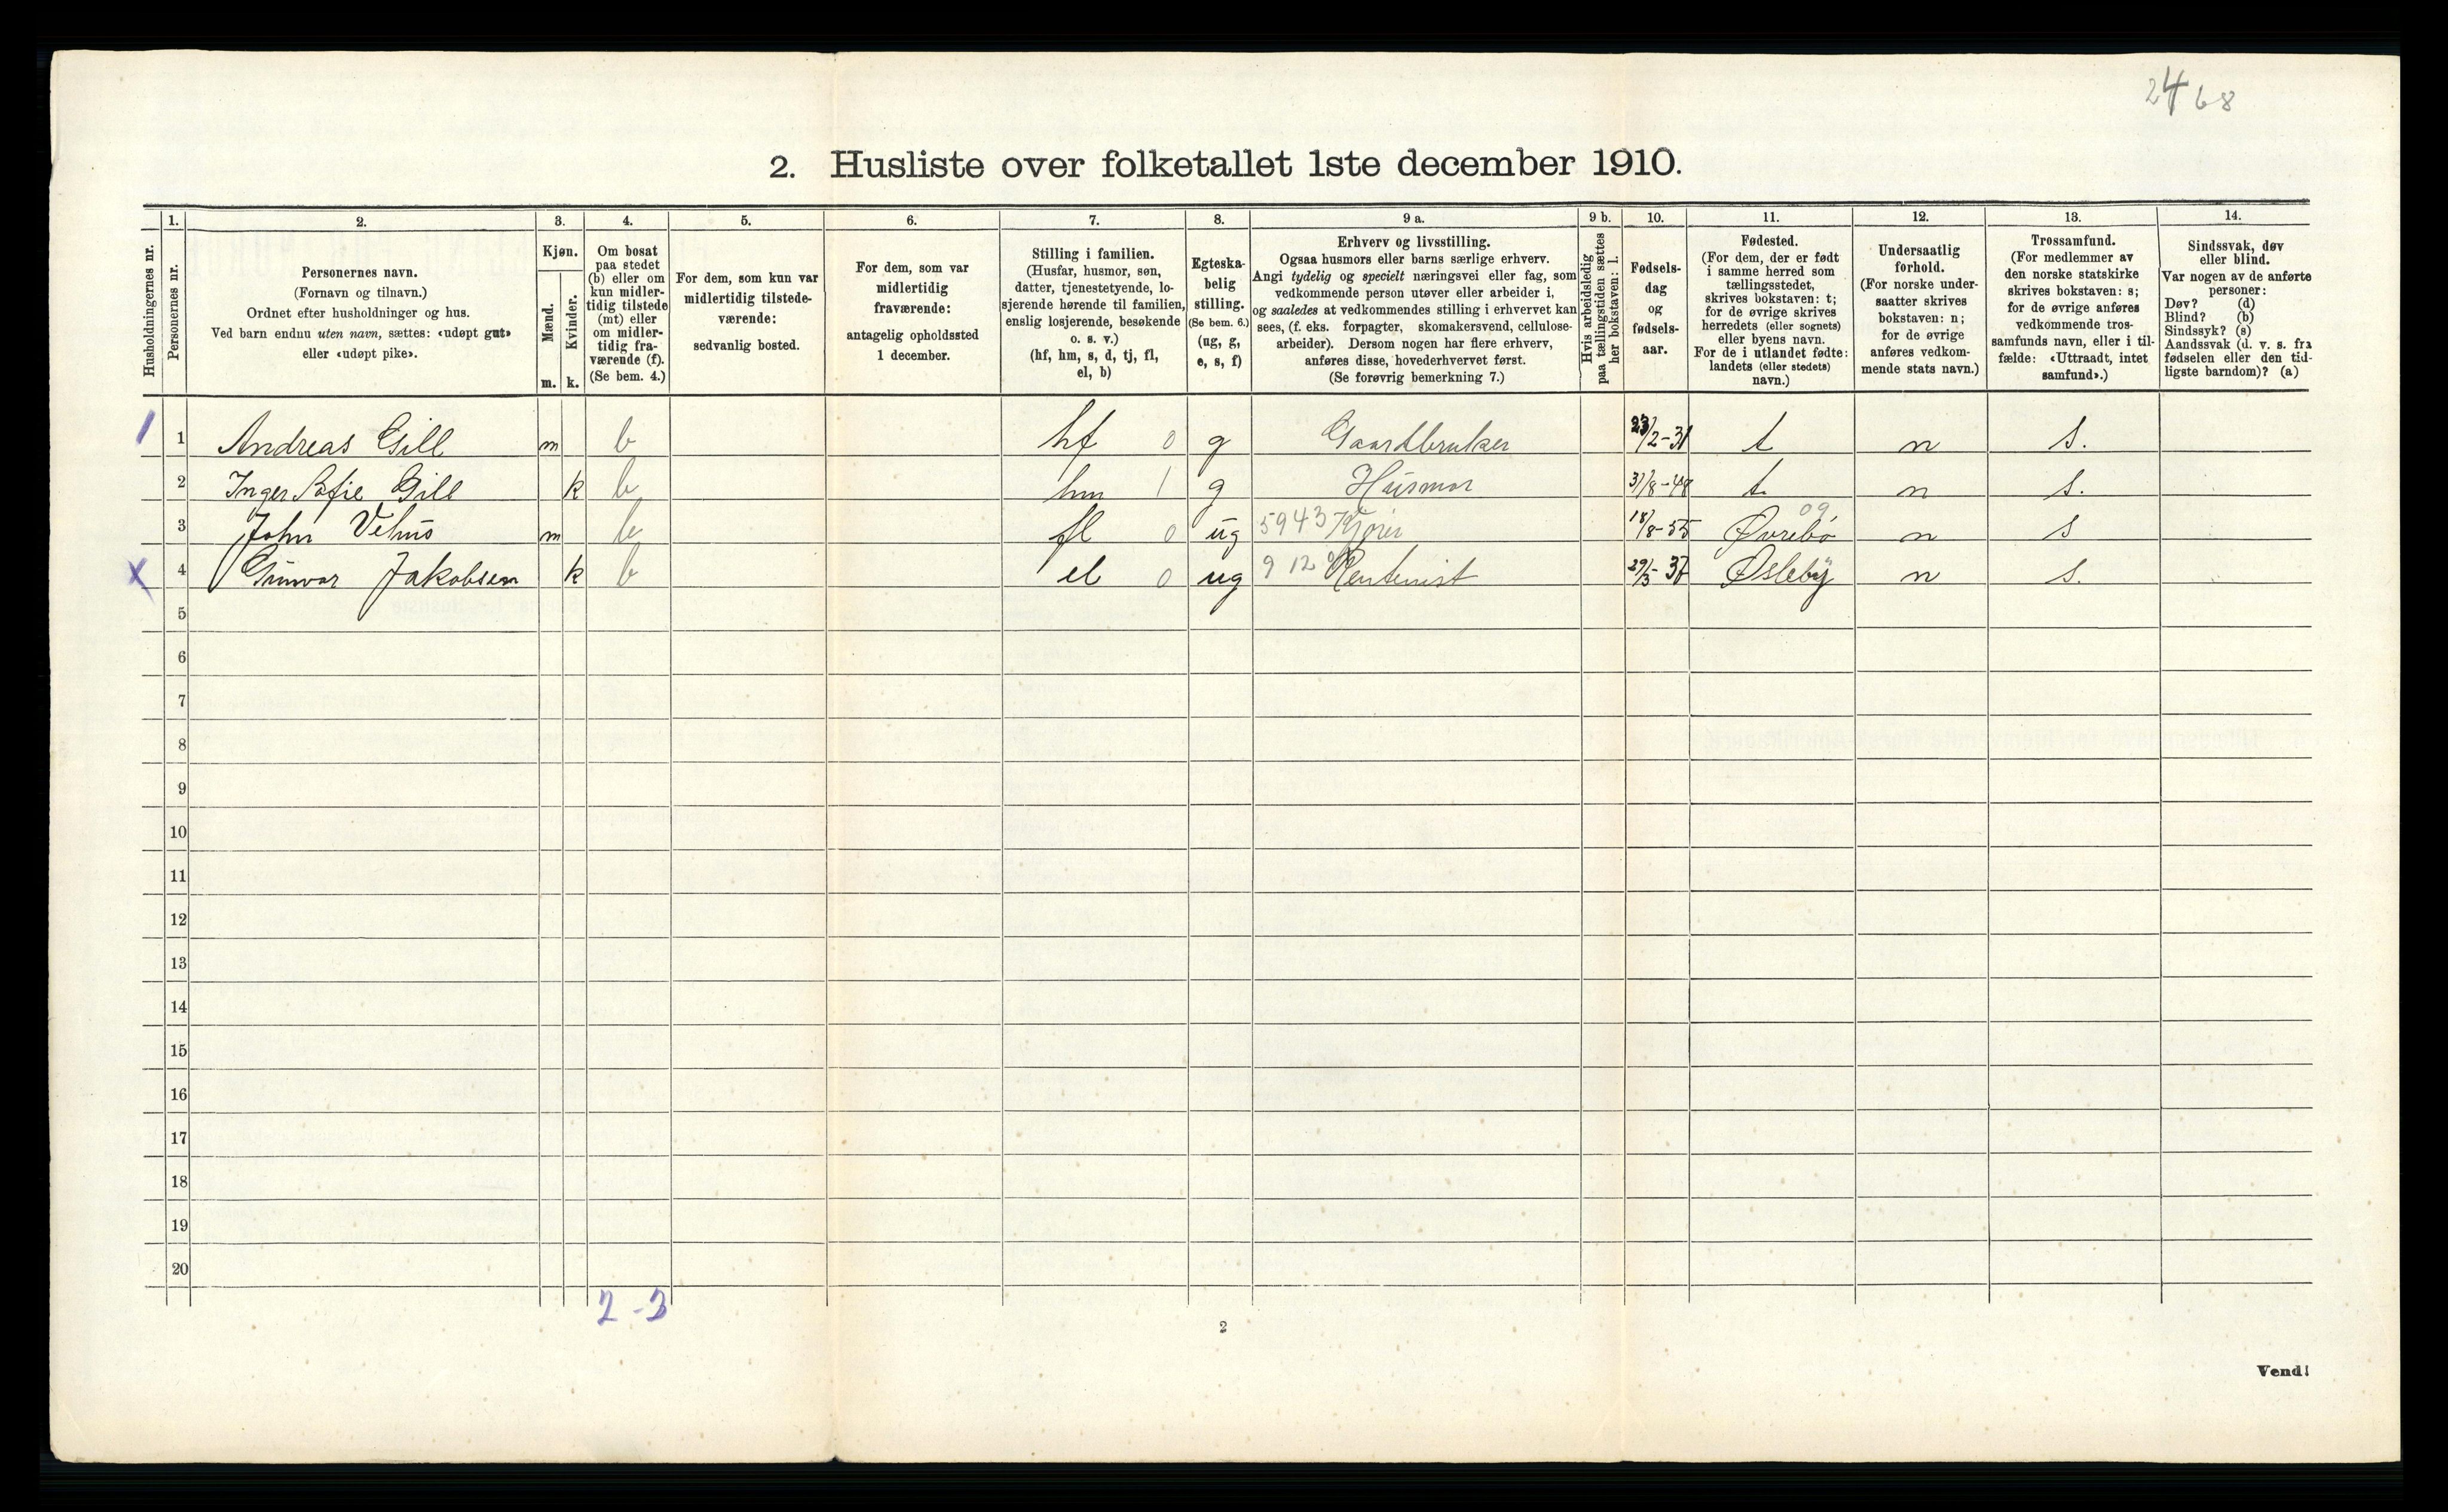 2468
2. Husliste over folketallet 1ste december 1910.
1. 2. 3. 4. 5. 6. 7. 8. 9 a. 9 b. 10. 11. 12. 13. 14.
Husholdningernes nr.
Personernes nr.
Personernes navn.
(Fornavn og tilnavn.)
Ordnet efter husholdninger og hus.
Ved barn endnu uten navn, sættes: «udøpt gut»
eller «udøpt pike».
Kjøn.
Mænd.
Kvinder.
m. k.
Om bosat
paa stedet
(b) eller om
kun midler-
tidig tilstede
(mt) eller
om midler-
tidig fra-
værende (f).
(Se bem. 4.)
For dem, som kun var
midlertidig tilstede-
værende:
sedvanlig bosted.
For dem, som var
midlertidig
fraværende:
antagelig opholdssted
1 december.
Stilling i familien.
(Husfar, husmor, søn,
datter, tjenestetyende, lo-
sjerende hørende til familien,
enslig losjerende, besøkende
o. s. v.)
(hf, hm, s, d, tj, fl,
el, b)
Egteska-
belig
stilling.
(Se bem. 6.)
(ug, g,
e, s, f)
Erhverv og livsstilling.
Ogsaa husmors eller barns særlige erhverv.
Angi tydelig og specielt næringsvei eller fag, som
vedkommende person utøver eller arbeider i,
og saaledes at vedkommendes stilling i erhvervet kan
sees, (f. eks. forpagter, skomakersvend, cellulose-
arbeider). Dersom nogen har flere erhverv,
anføres disse, hovederhvervet først.
(Se forøvrig bemerkning 7.)
Hvis arbeidsledig
paa tællingstiden sættes
her bokstaven: l.
Fødsels-
dag
og
fødsels-
aar.
Fødested.
(For dem, der er født
i samme herred som
tællingsstedet,
skrives bokstaven: t;
for de øvrige skrives
herredets (eller sognets)
eller byens navn.
For de i utlandet fødte:
landets (eller stedets)
navn.)
Undersaatlig
forhold.
(For norske under-
saatter skrives
bokstaven: n;
for de øvrige
anføres vedkom-
mende stats navn.)
Trossamfund.
(For medlemmer av
den norske statskirke
skrives bokstaven: s;
for de øvrige anføres
vedkommende tros-
samfunds navn, eller i til-
fælde: «Uttraadt, intet
samfund».)
Sindssvak, døv
eller blind.
Var nogen av de anførte
personer:
Døv? (d)
Blind? (b)
Sindssyk? (s)
Aandssvak (d. v. s. fra
fødselen eller den tid-
ligste barndom)? (a)
1 1 Andreas Gill m b hf 0 g Gaardbruker 23/2-31 t n s.
2 Inger Sofie Gill k b hm 1 g Husmor 31/8-48 t. n s.
3 John Vehus m b fl 0 ug 5943 Kjører 18/8-55 Øvrebø 09 n s
x 4 Gunvor Jakobsen k b el 0 ug 9 12 Rentenist 29/3-37 Øsleby n s.
5
6
7
8
9
10
11
12
13
14
15
16
17
18
19
20
2-2
2
Vend!